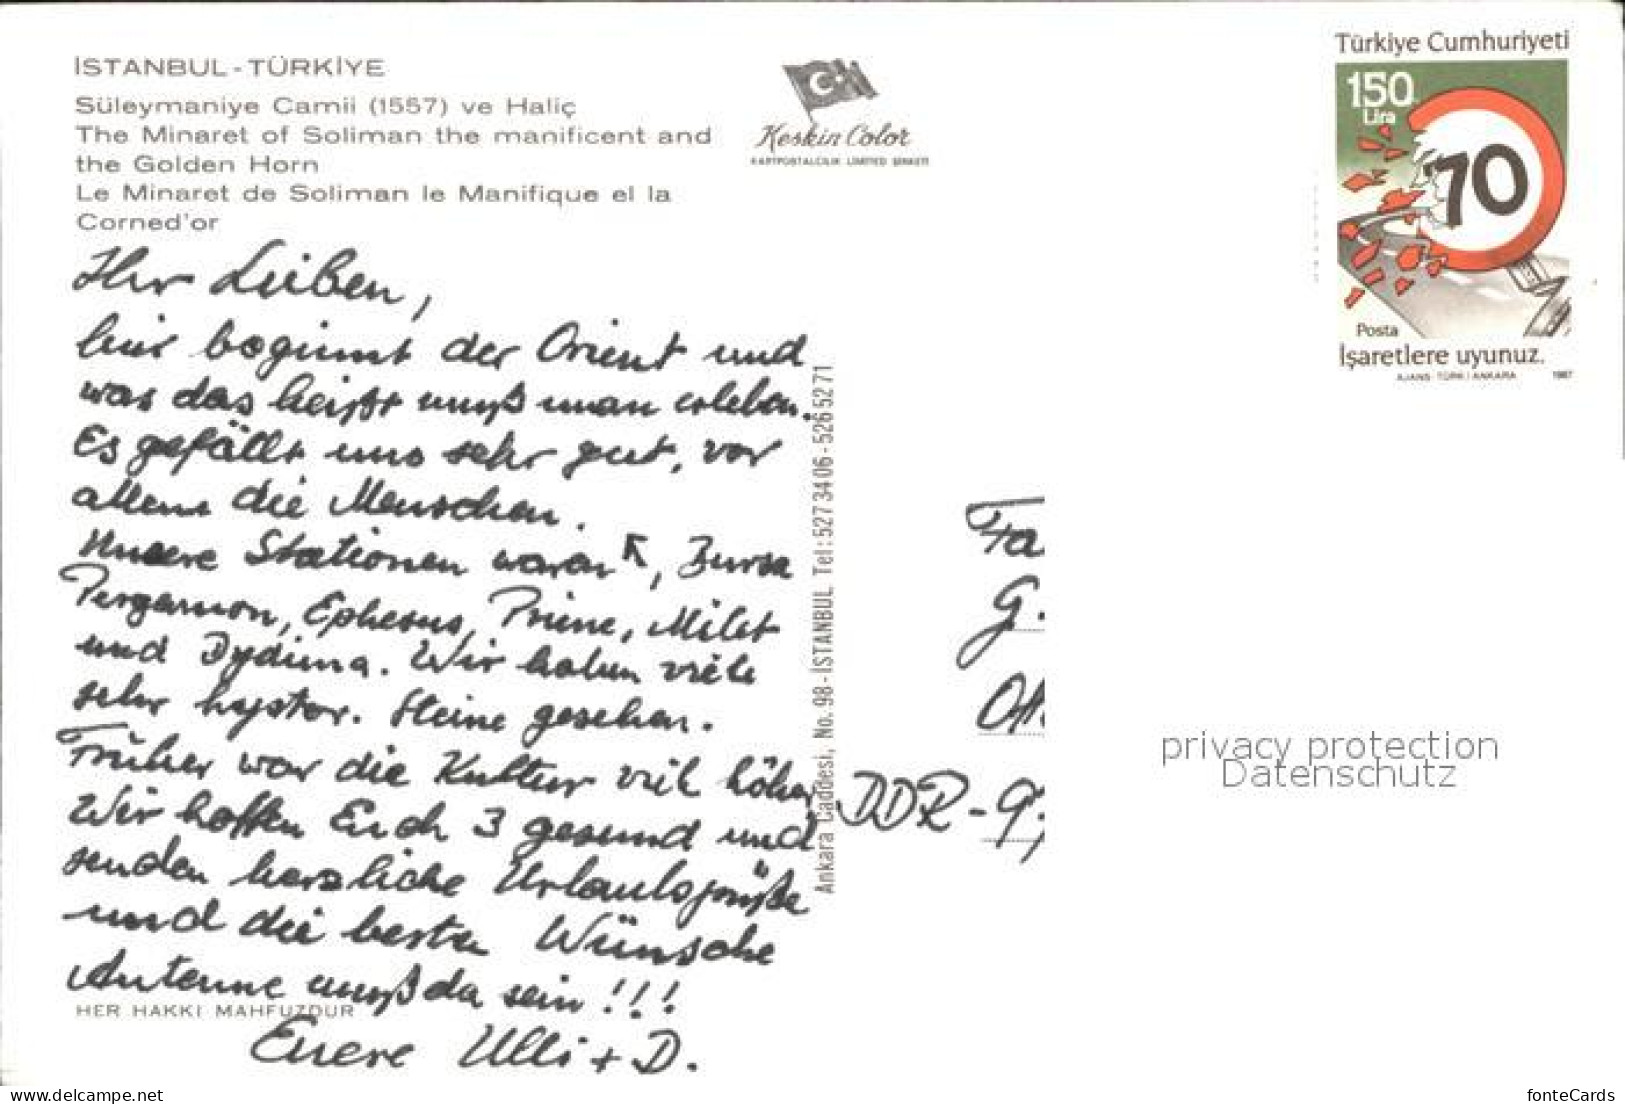 İSTANBUL - TÜRKİYE
Süleymaniye Camii (1557) ve Haliç
The Minaret of Soliman the manificent and
the Golden Horn
Le Minaret de Soliman le Manifique el la
Corned'or
Keskin Color
KARTPOSTALCILIK LIMITED ŞİRKETİ
Türkiye Cumhuriyeti
150
Lira
70
Posta
İşaretlere uyunuz.
AJANS-TÜRK / ANKARA 1987
Ihr Lieben,
hier beginnt der Orient und
was das heißt muß man erleben.
Es gefällt uns sehr gut, vor
allem die Menschen.
Unsere Stationen waren , Bursa
Pergamon, Ephesus, Priene, Milet
und Dydima. Wir haben viele
sehr hystor. Steine gesehen.
Früher war die Kultur viel höher
Wir hoffen Euch 3 gesund und
senden herzliche Urlaubsgrüße
und die besten Wünsche
Antenne muß da sein !!!
HER HAKKI MAHFUZDUR
Euere Ulli + D.
Ankara Caddesi, No. 98 - İSTANBUL Tel: 527 34 06 - 526 52 71
Fa
G.
DDR - 9
privacy protection
Datenschutz
www.delcampe.net
fonteCards